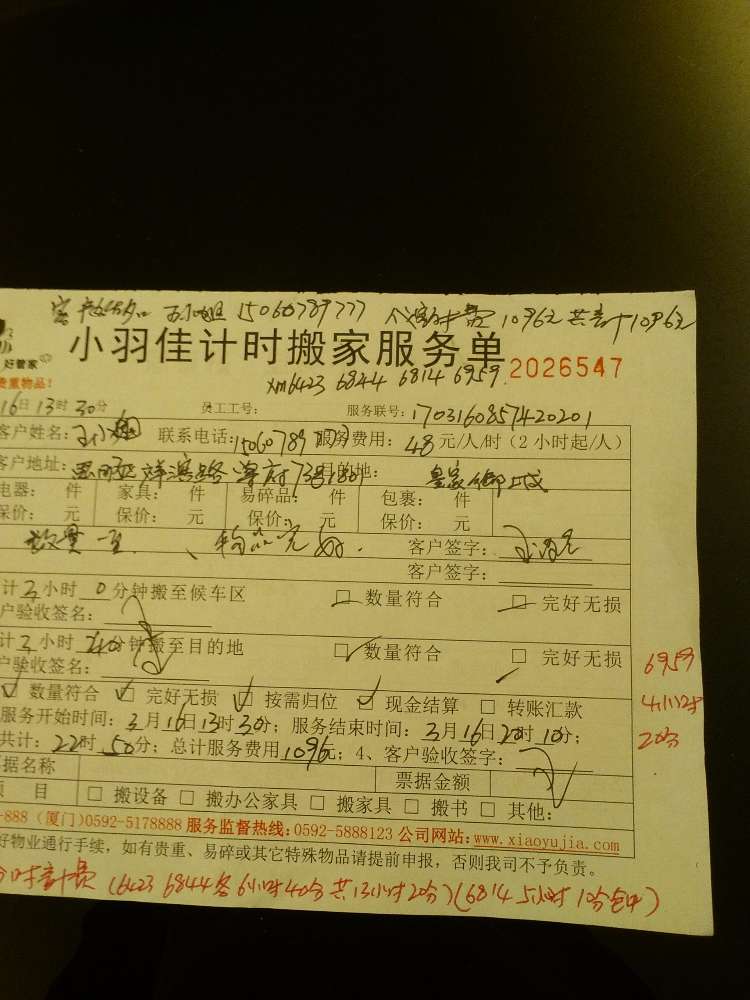 15060789777 人工计费1096元 共计1096元
小羽佳计时搬家服务单 2026547
好管家
贵重物品! xm6423 6844 6814 6959
16日13时30分 员工工号: 服务联号:1703160857420201
客户姓名: 联系电话:15060789777 服务费用:48元/人/时(2小时起/人)
客户地址: 目的地:皇家御城
电器: 件 家具: 件 易碎品: 件 包裹: 件
保价: 元 保价: 元 保价: 元 保价: 元
数量一至、物品完好. 客户签字:
客户签字:
计 小时 0分钟搬至候车区 □ 数量符合 □ 完好无损
户验收签名:
计 小时 分钟搬至目的地 ☑ 数量符合 □ 完好无损
户验收签名:
☑ 数量符合 ☑ 完好无损 ☑ 按需归位 ☑ 现金结算 □ 转账汇款
服务开始时间:3月16日13时30分;服务结束时间:3月16日20时10分;
共计:22时50分;总计服务费用1096元;4、客户验收签字:
据名称 票据金额
项 目 □ 搬设备 □ 搬办公家具 □ 搬家具 □ 搬书 □ 其他:
-888 (厦门)0592-5178888 服务监督热线:0592-5888123 公司网站:www.xiaoyujia.com
好物业通行手续,如有贵重、易碎或其它特殊物品请提前申报,否则我司不予负责。
时计费(6423 6844各6小时40分共13小时20分)(6814 5小时10分
6959
4小时
20分